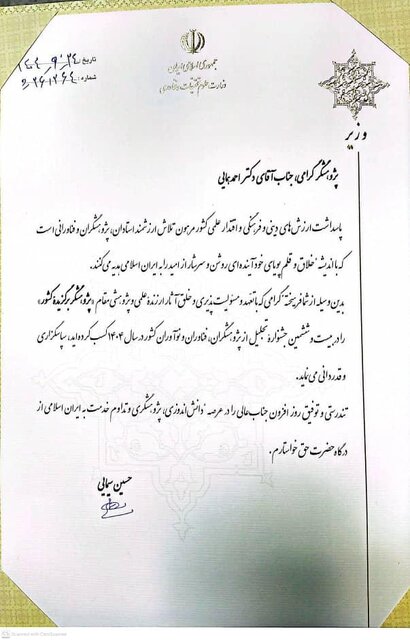 جمهوری اسلامی ایران
وزارت علوم، تحقیقات و فناوری
تاریخ
شماره
وزیر
پژوهشگر گرامی، جناب آقای دکتر احمد همایی
پاسداشت ارزش‌های دینی و فرهنگی و اقتدار علمی کشور مرهون تلاش ارزشمند استادان، پژوهشگران و فناورانی است
که با اندیشه خلاق و قلم پویای خود آینده‌ای روشن و سرشار از امید را به ایران اسلامی هدیه می‌کنند.
بدین وسیله از شما فرهیخته گرامی که با تعهد و مسئولیت پذیری و خلق آثار ارزندۀ علمی و پژوهشی مقام «پژوهشگر برگزیدۀ کشور»
را در بیست و ششمین جشنوارۀ تجلیل از پژوهشگران، فناوران و نوآوران کشور در سال ۱۴۰۴ کسب کرده‌اید، سپاسگزاری
و قدردانی می‌نماید.
تندرستی و توفیق روز افزون جناب عالی را در عرصه دانش‌اندوزی، پژوهشگری و تداوم خدمت به ایران اسلامی از
درگاه حضرت حق خواستارم.
حسین سیمایی
Scanned with CamScanner